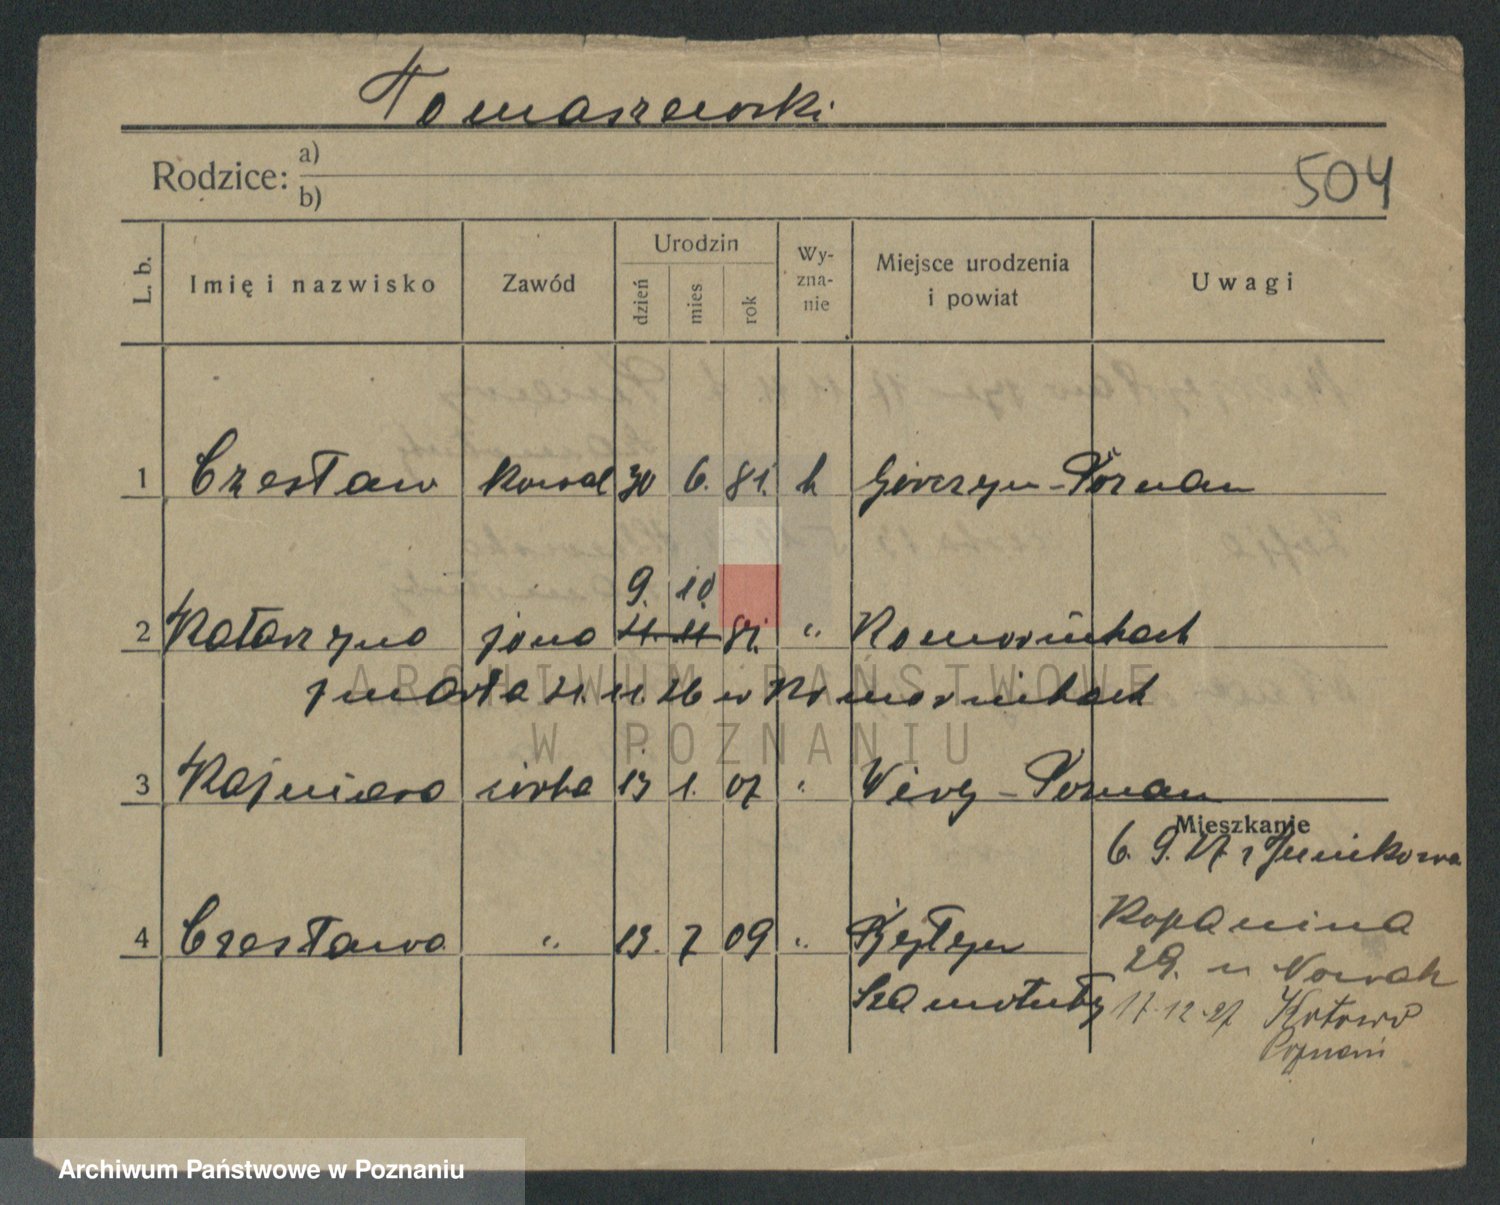 Tomaszewski
Rodzice: a)
b)
504
L. b. Imię i nazwisko Zawód Urodzin dzień mies rok Wy-zna-nie Miejsce urodzenia i powiat Uwagi
1 Czesław kowal 30 6. 81. k Górczyn - Poznań
9. 10.
2 Katarzyna żona 11. 11 81. " Komornikach
zmarła 21. 11. 26 w Komornikach
3 Kaźmiera córka 13 1. 07 " Wiry - Poznań
Mieszkanie
6. 9. 27 z Junikowa
4 Czesława " 13. 7 09 "
Kopanina
29. u Nowak
Szamotuły
17.12.27 Kotowo
Poznań
ARCHIWUM PAŃSTWOWE
W POZNANIU
Archiwum Państwowe w Poznaniu